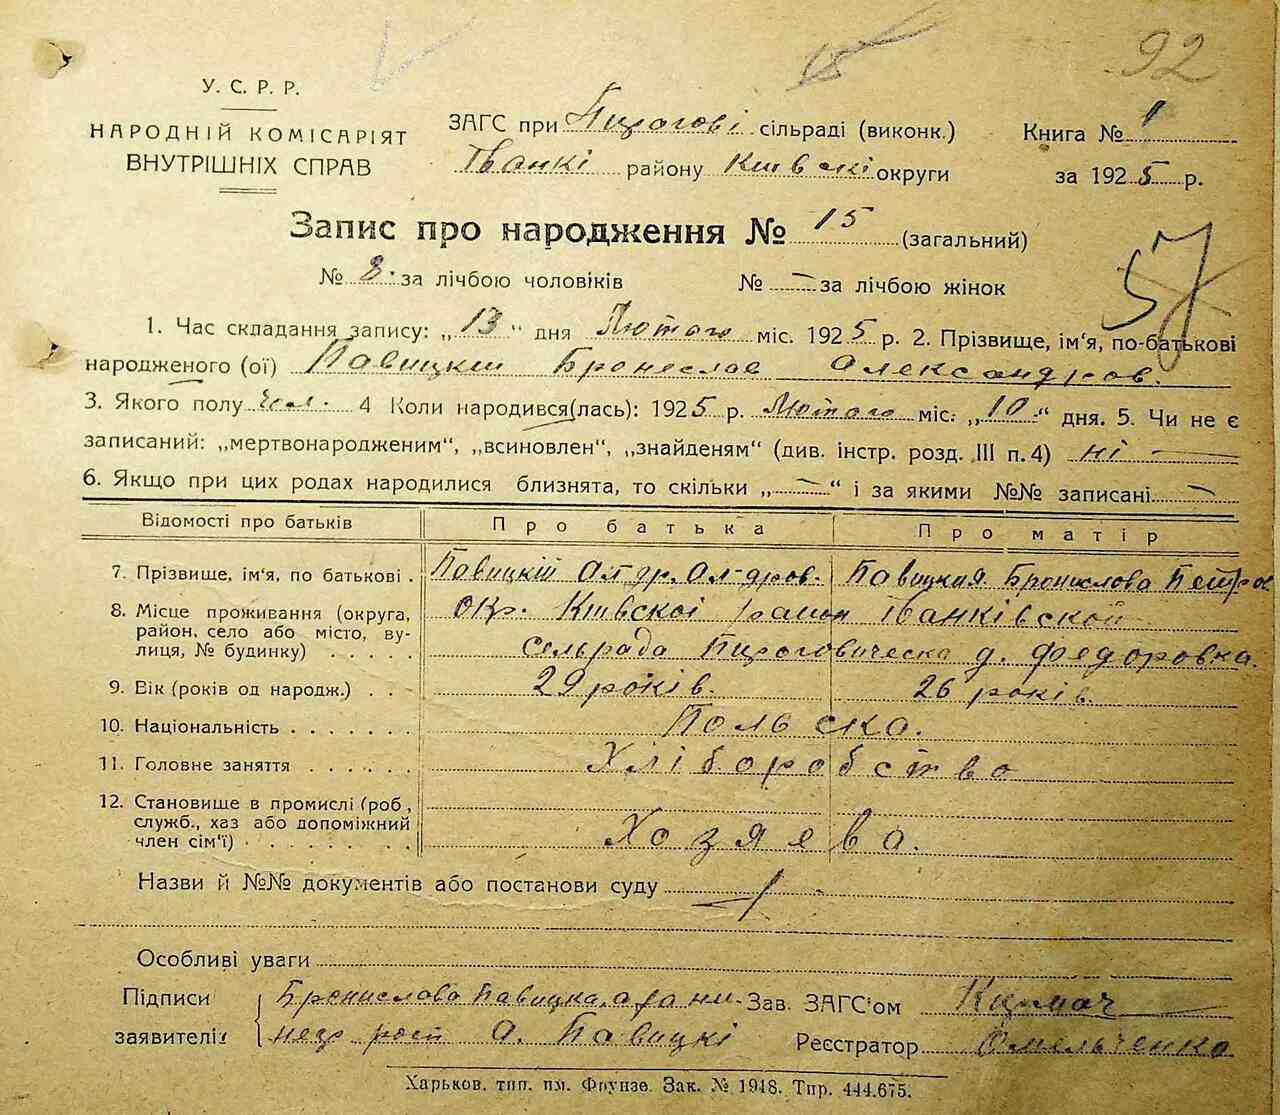 92
У. С. Р. Р.
НАРОДНІЙ КОМІСАРІЯТ
ВНУТРІШНІХ СПРАВ
ЗАГС при Пирогові сільраді (виконк.)
Іванкі району Киівскі округи
Книга № 1
за 1925 р.
Запис про народження № 15 (загальний)
№ 8. за лічбою чоловіків № — за лічбою жінок
57
1. Час складання запису: „13“ дня Лютого міс. 1925 р. 2. Прізвище, ім'я, по-батькові
народженого (ої) Павицкий Бронеслав Александров.
3. Якого полу чол. 4 Коли народився(лась): 1925 р. Лютого міс. „10“ дня. 5. Чи не є
записаний: „мертвонародженим“, „всиновлен“, „знайденям“ (див. інстр. розд. III п. 4) ні —
6. Якщо при цих родах народилися близнята, то скільки „—“ і за якими №№ записані —
Відомості про батьків Про батька Про матір
7. Прізвище, ім'я, по батькові . Павицкій Ал-др. Ал-дров. Павицкия Бронислова Петров
8. Місце проживання (округа, окр. Киівскоі район Іванківской
район, село або місто, ву- сельрада Пироговическа д. Федоровка.
лиця, № будинку) . . . . .
9. Вік (років од народж.) . . 29 років. 26 років.
10. Національність . . . . . . . Польска.
11. Головне заняття . . . . . . Хліборобство
12. Становище в промислі (роб,
служб., хаз або допоміжний Хозяева.
член сім'ї) . . . . . . . .
Назви й №№ документів або постанови суду
Особливі уваги
Підписи Бронислова Павицка, а за ни- Зав. ЗАГС'ом
заявителів А. Павицкі Реєстратор Омельченко
Харьков. тип. им. Фрунзе. Зак. № 1948. Тир. 444.675.